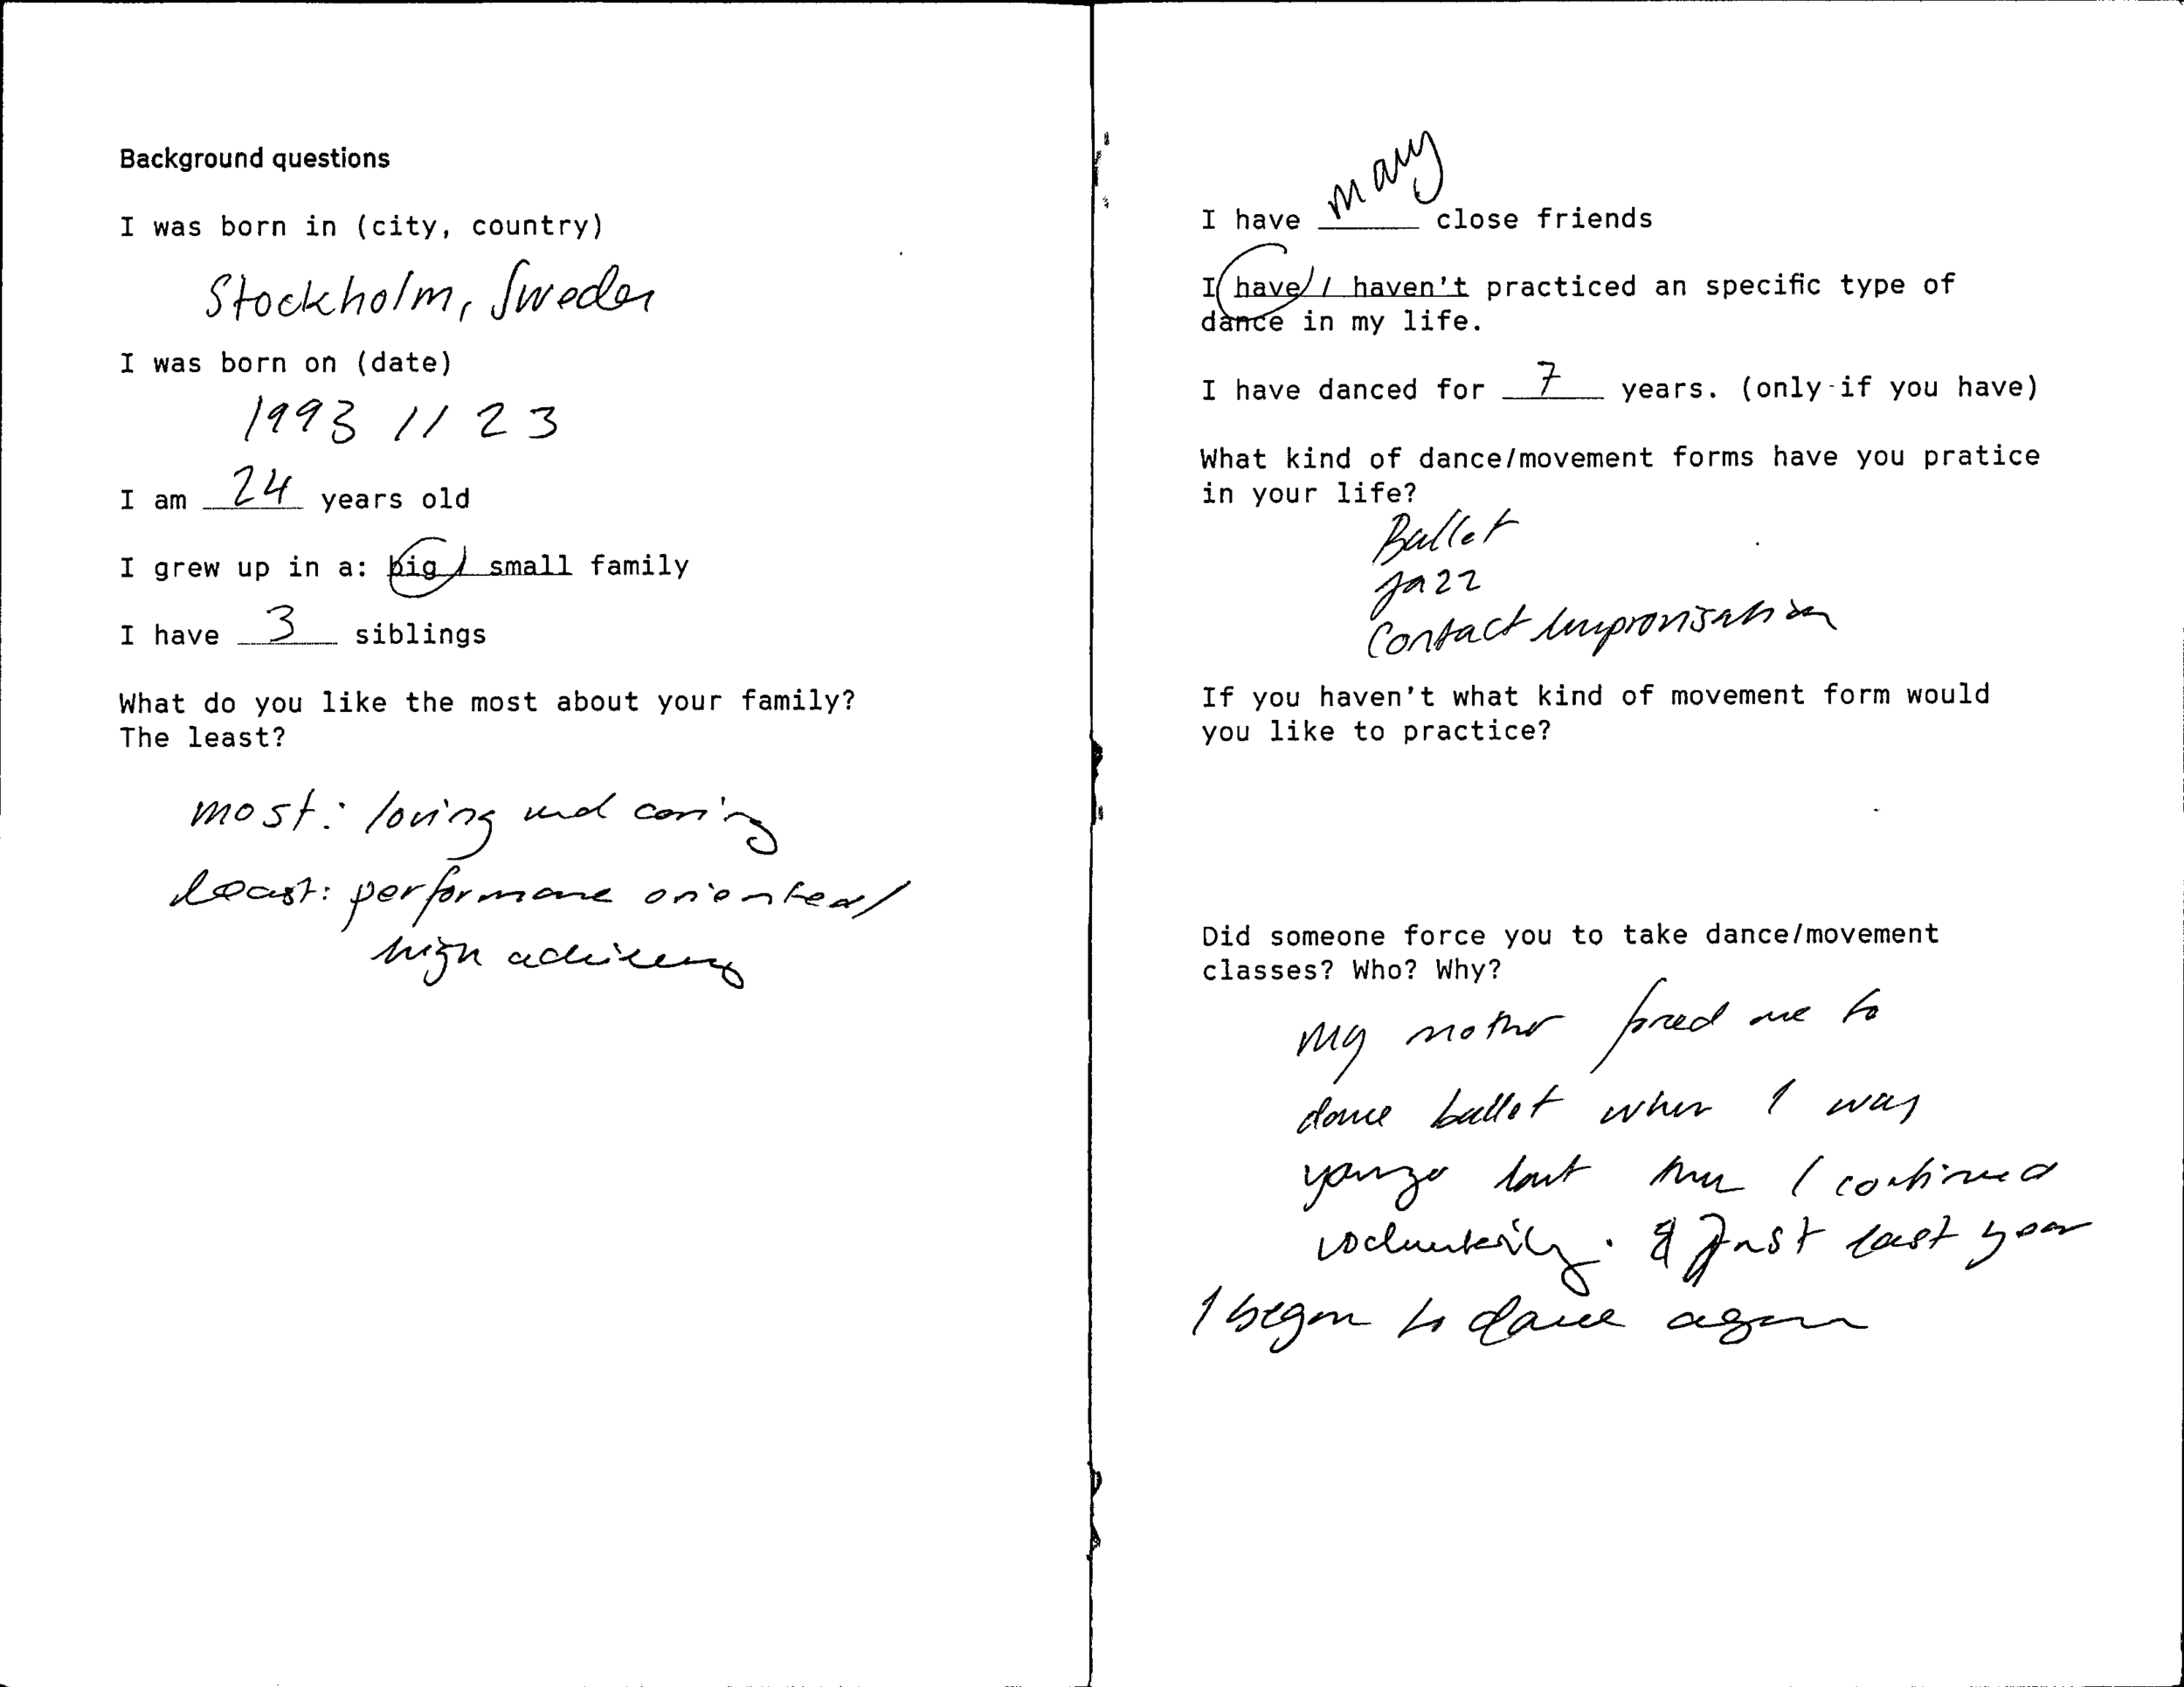 Background questions
I was born in (city, country)
Stockholm, Sweden
I was born on (date)
1993 11 23
I am 24 years old
I grew up in a: big / small family
I have 3 siblings
What do you like the most about your family?
The least?
most: loving and caring
least: performance oriented/
high achieving
I have many close friends
I have / haven't practiced an specific type of
dance in my life.
I have danced for 7 years. (only if you have)
What kind of dance/movement forms have you pratice
in your life?
Ballet
Jazz
Contact Improvisation
If you haven't what kind of movement form would
you like to practice?
Did someone force you to take dance/movement
classes? Who? Why?
My mother forced me to
dance ballet when I was
younger but then I continued
voluntarily. Just last year
I began to dance again